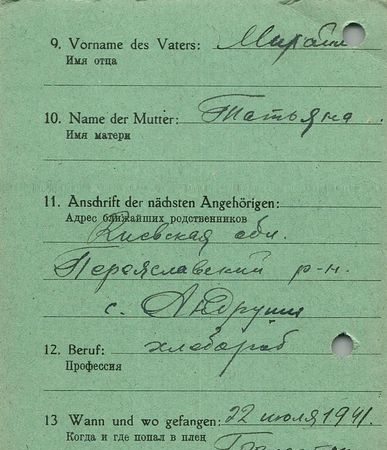 9. Vorname des Vaters:
Имя отца
10. Name der Mutter: Татьяна
Имя матери
11. Anschrift der nächsten Angehörigen:
Адрес ближайших родственников
Киевская обл.
Переяславский р-н.
с. Андруши
12. Beruf: хлебороб
Профессия
13 Wann und wo gefangen: 22 июля 1941.
Когда и где попал в плен